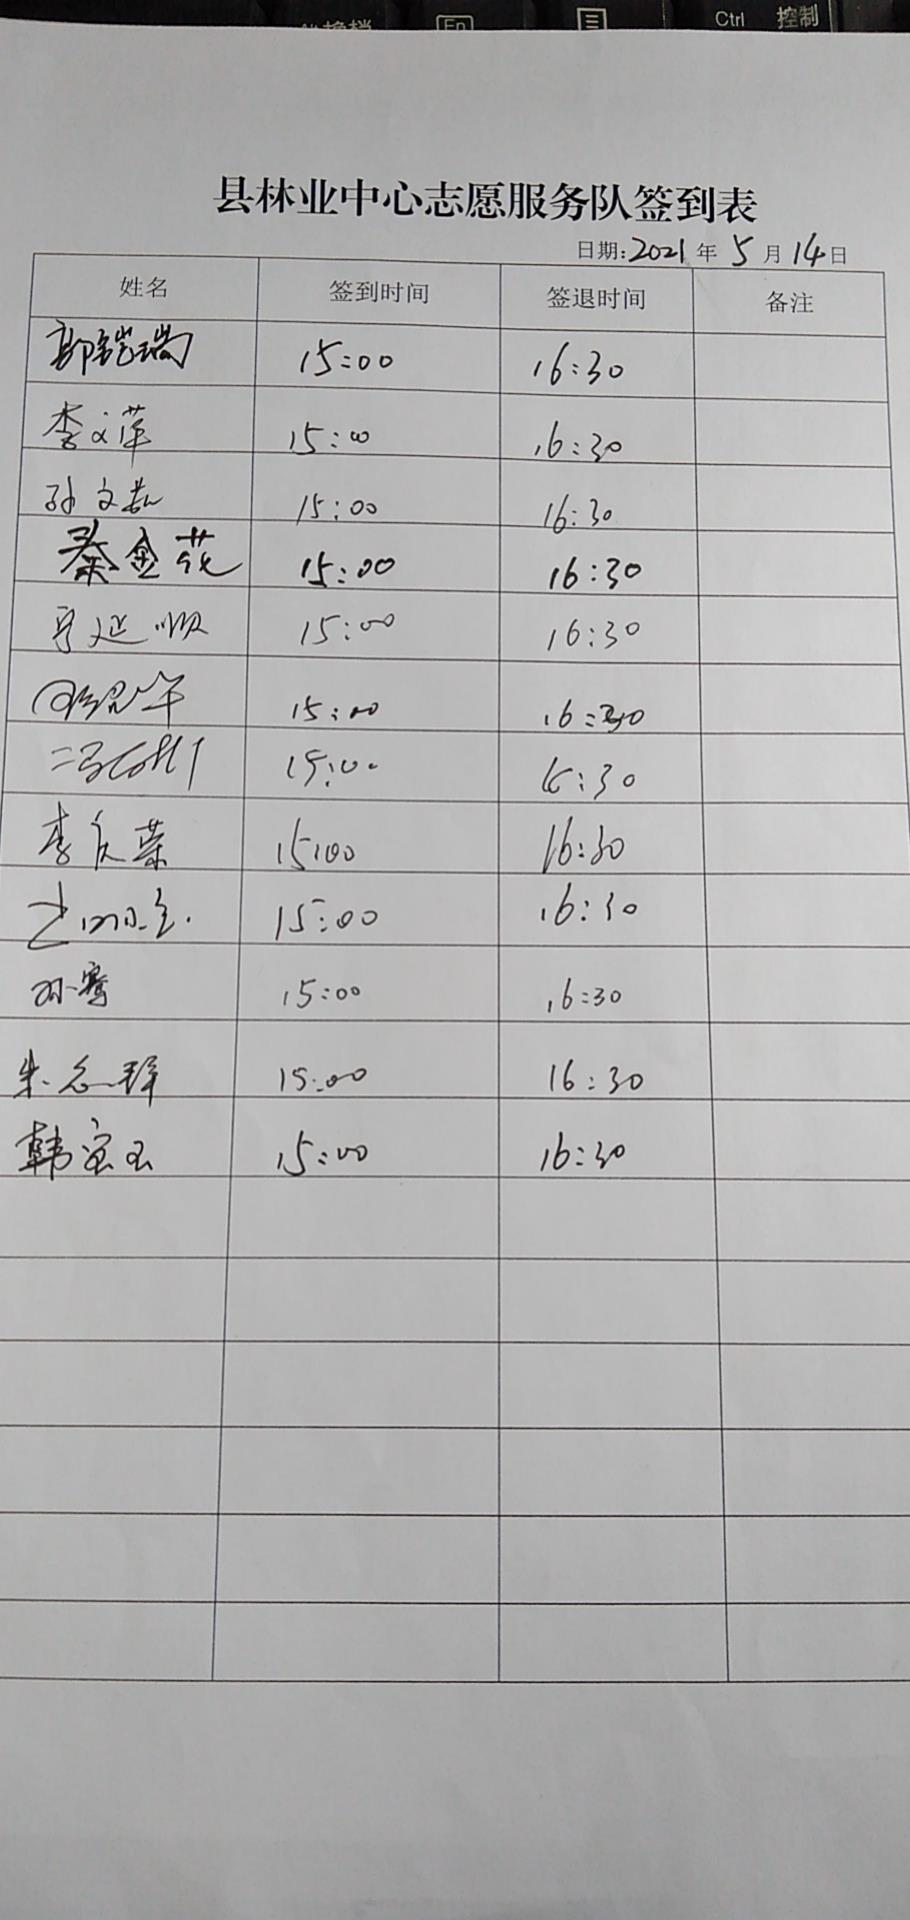 En
Ctrl 控制
县林业中心志愿服务队签到表
日期:2021年5月14日
姓名 签到时间 签退时间 备注
郭铠瑞 15:00 16:30
李文萍 15:00 16:30
孙文 15:00 16:30
秦金花 15:00 16:30
延顺 15:00 16:30
15:00 16:30
15:00 16:30
李庆荣 15:00 16:30
15:00 16:30
孙骞 15:00 16:30
朱志 15:00 16:30
韩宝玉 15:00 16:30